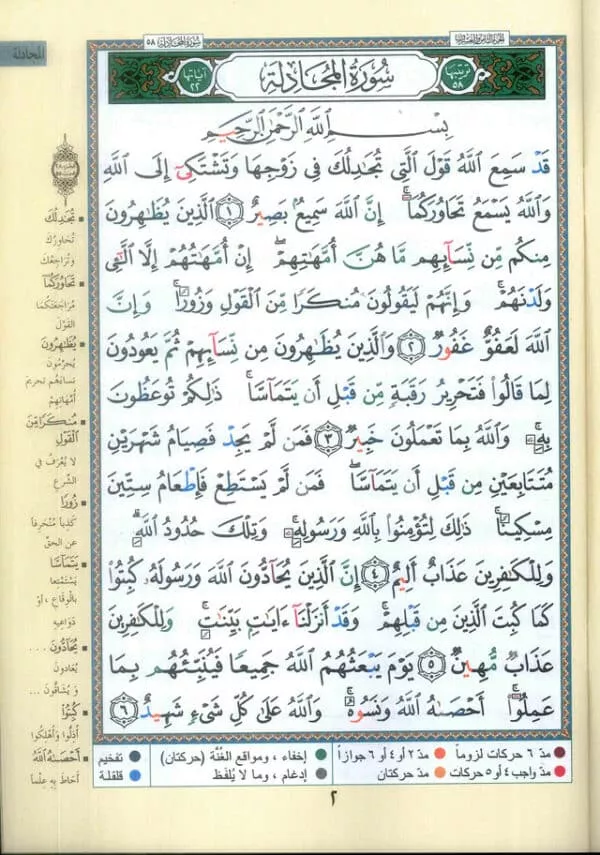 سُورَةُ المُجَادلَة ٥٨
الجزء الثامن والعشرون
المجادلة
ترتيبها ٥٨
سُورَةُ المُجَادِلَة
آياتها ٢٢
بِسْمِ ٱللَّهِ ٱلرَّحْمَٰنِ ٱلرَّحِيمِ
قَدْ سَمِعَ ٱللَّهُ قَوْلَ ٱلَّتِى تُجَٰدِلُكَ فِى زَوْجِهَا وَتَشْتَكِىٓ إِلَى ٱللَّهِ
وَٱللَّهُ يَسْمَعُ تَحَاوُرَكُمَآ إِنَّ ٱللَّهَ سَمِيعٌۢ بَصِيرٌ ١ ٱلَّذِينَ يُظَٰهِرُونَ
مِنكُم مِّن نِّسَآئِهِم مَّا هُنَّ أُمَّهَٰتِهِمْ ۖ إِنْ أُمَّهَٰتُهُمْ إِلَّا ٱلَّٰٓـِٔى
وَلَدْنَهُمْ ۚ وَإِنَّهُمْ لَيَقُولُونَ مُنكَرًا مِّنَ ٱلْقَوْلِ وَزُورًا ۚ وَإِنَّ
ٱللَّهَ لَعَفُوٌّ غَفُورٌ ٢ وَٱلَّذِينَ يُظَٰهِرُونَ مِن نِّسَآئِهِمْ ثُمَّ يَعُودُونَ
لِمَا قَالُوا۟ فَتَحْرِيرُ رَقَبَةٍ مِّن قَبْلِ أَن يَتَمَآسَّا ۚ ذَٰلِكُمْ تُوعَظُونَ
بِهِۦ ۚ وَٱللَّهُ بِمَا تَعْمَلُونَ خَبِيرٌ ٣ فَمَن لَّمْ يَجِدْ فَصِيَامُ شَهْرَيْنِ
مُتَتَابِعَيْنِ مِن قَبْلِ أَن يَتَمَآسَّا ۖ فَمَن لَّمْ يَسْتَطِعْ فَإِطْعَامُ سِتِّينَ
مِسْكِينًا ۚ ذَٰلِكَ لِتُؤْمِنُوا۟ بِٱللَّهِ وَرَسُولِهِۦ ۚ وَتِلْكَ حُدُودُ ٱللَّهِ ۗ
وَلِلْكَٰفِرِينَ عَذَابٌ أَلِيمٌ ٤ إِنَّ ٱلَّذِينَ يُحَآدُّونَ ٱللَّهَ وَرَسُولَهُۥ كُبِتُوا۟
كَمَا كُبِتَ ٱلَّذِينَ مِن قَبْلِهِمْ ۚ وَقَدْ أَنزَلْنَآ ءَايَٰتٍۭ بَيِّنَٰتٍ ۚ وَلِلْكَٰفِرِينَ
عَذَابٌ مُّهِينٌ ٥ يَوْمَ يَبْعَثُهُمُ ٱللَّهُ جَمِيعًا فَيُنَبِّئُهُم بِمَا
عَمِلُوٓا۟ ۚ أَحْصَىٰهُ ٱللَّهُ وَنَسُوهُ ۚ وَٱللَّهُ عَلَىٰ كُلِّ شَىْءٍ شَهِيدٌ ٦
تُجَٰدِلُكَ
تُحاوِرُكَ
وَتُراجِعُكَ
تَحَاوُرَكُمَا
مُراجَعَتَكُما
القَوْلَ
يُظَٰهِرُونَ
يُحَرِّمُونَ
نِساءَهُم تحريمَ
أُمَّهاتِهِمْ
مُنكَرًا مِّنَ
ٱلْقَوْلِ
لا يُعْرَفُ في
الشَّرعِ
زُورًا
كَذِباً مُنْحَرِفاً
عن الحقّ
يَتَمَآسَّا
يَسْتَمْتِعا
بالوِقَاعِ ، أو
دَواعِيهِ
يُحَآدُّونَ ...
يُعَادونَ
وَ يُشَاقُّونَ ...
كُبِتُوا۟
أُذِلُّوا وَأُهْلِكُوا
أَحْصَىٰهُ ٱللَّهُ
أَحَاطَ بِهِ عِلْماً
مدّ ٦ حركات لزوماً
مدّ ٢ أو ٤ أو ٦ جوازاً
مدّ واجب ٤ أو ٥ حركات
مدّ حركتان
إخفاء ، ومواقع الغُنَّة (حركتان)
إدغام ، وما لا يُلفَظ
تفخيم
قلقلة
٢